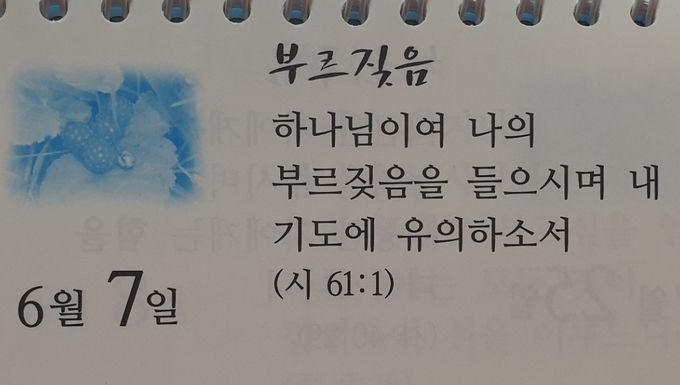 부르짖음
하나님이여 나의
부르짖음을 들으시며 내
기도에 유의하소서
(시 61:1)
6월 7일